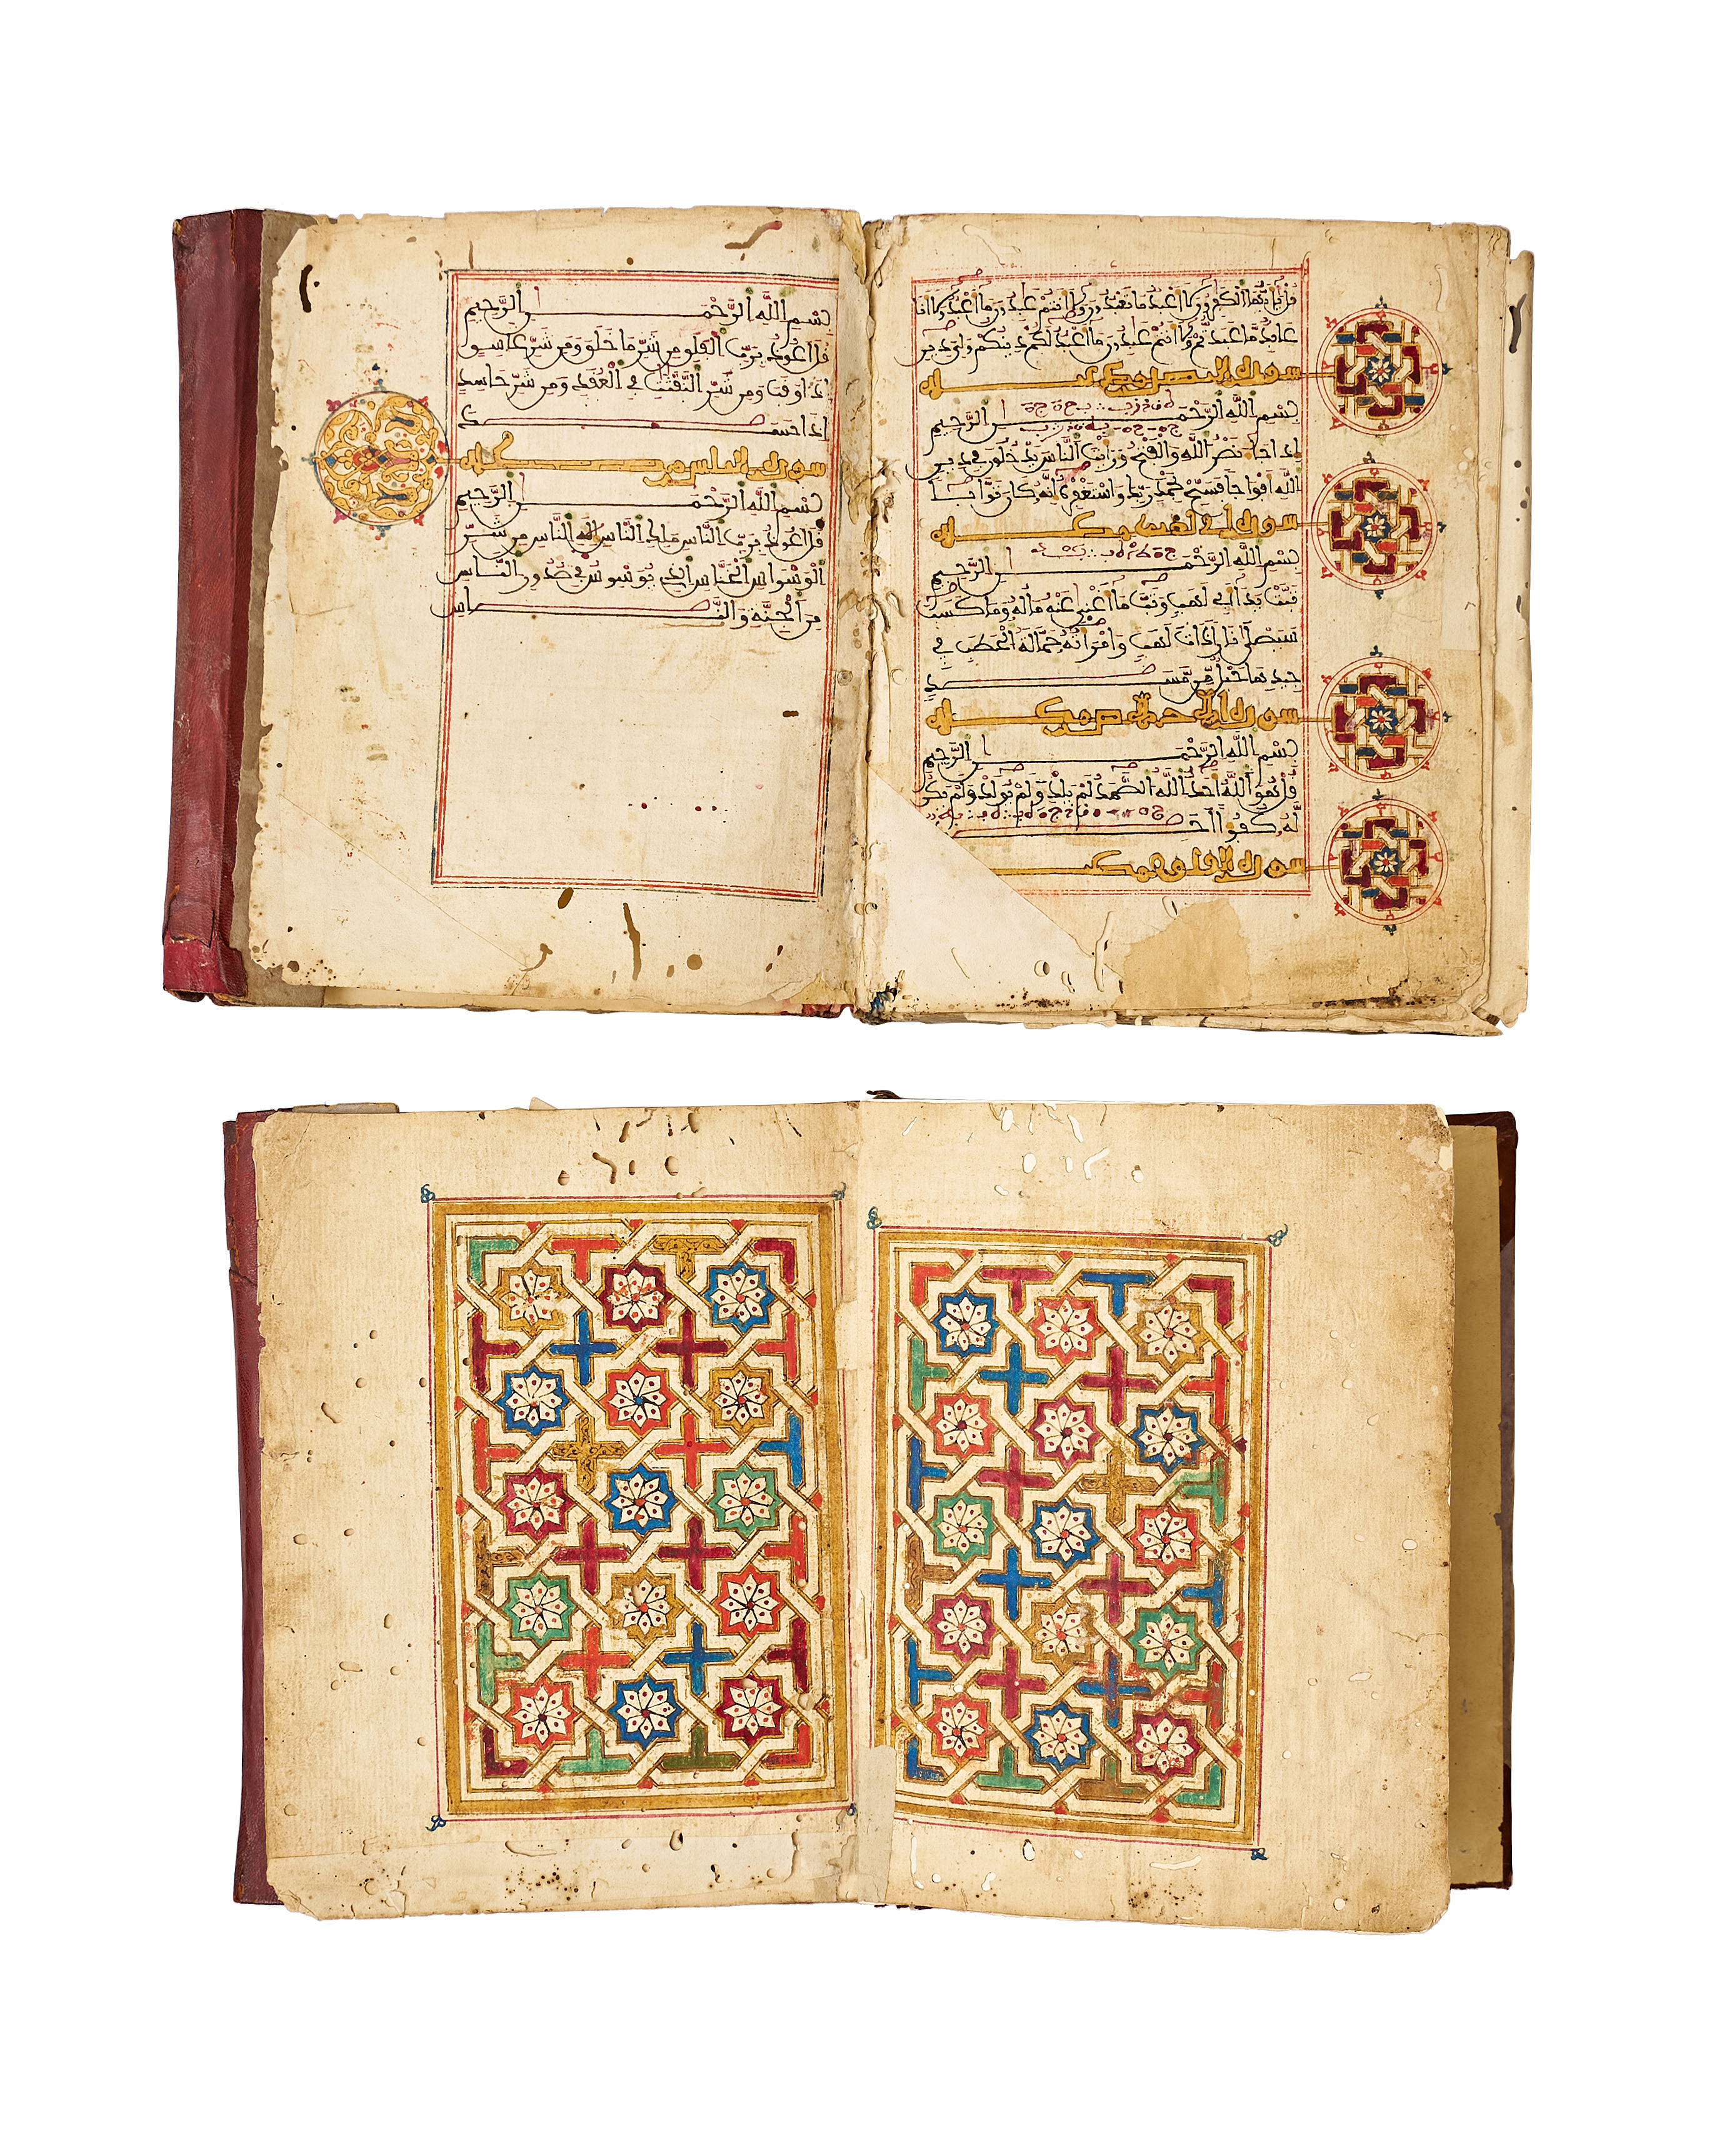 قل يأيها الكفرون لا أعبد ما تعبدون ولا أنتم عبدون ما أعبد ولا أنا
عابد ما عبدتم ولا أنتم عبدون ما أعبد لكم دينكم ولي دين
سورة النصر
بسم الله الرحمن الرحيم
إذا جاء نصر الله والفتح ورأيت الناس يدخلون في دين
الله أفواجا فسبح بحمد ربك واستغفره إنه كان توابا
سورة أبي لهب
بسم الله الرحمن الرحيم
تبت يدا أبي لهب وتب ما أغنى عنه ماله وما كسب
سيصلى نارا ذات لهب وامرأته حمالة الحطب في
جيدها حبل من مسد
سورة
بسم الله الرحمن الرحيم
قل هو الله أحد الله الصمد لم يلد ولم يولد ولم يكن
له كفؤا أحد
سورة الفلق
بسم الله الرحمن الرحيم
قل أعوذ برب الفلق من شر ما خلق ومن شر غاسق
إذا وقب ومن شر النفثت في العقد ومن شر حاسد
إذا حسد
سورة الناس
بسم الله الرحمن الرحيم
قل أعوذ برب الناس ملك الناس إله الناس من شر
الوسواس الخناس الذي يوسوس في صدور الناس
من الجنة والناس